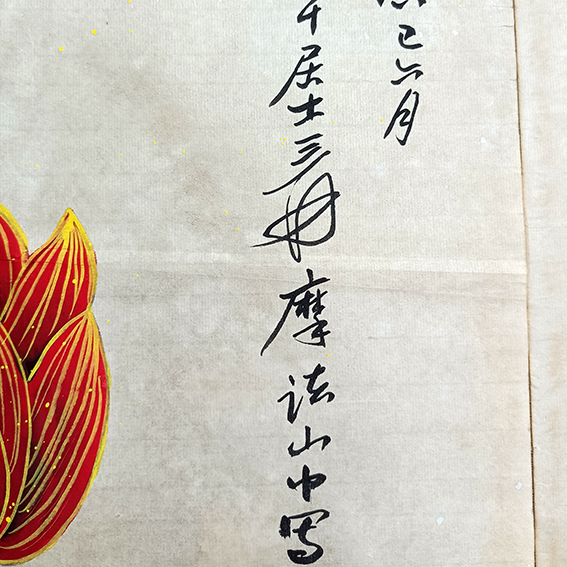 巳六月
居士三摩诘山中写